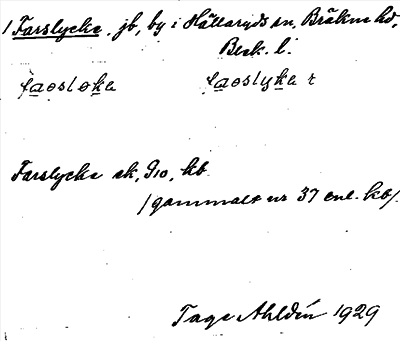 / Farslycke, jb, by i Hällaryds sn, Bräkne hd,
Blek. l.
faosloka faoslyka r
Farslycke ek, G10, kb
/gammalt nr 37 enl. kb/.
Tage Ahldén 1929